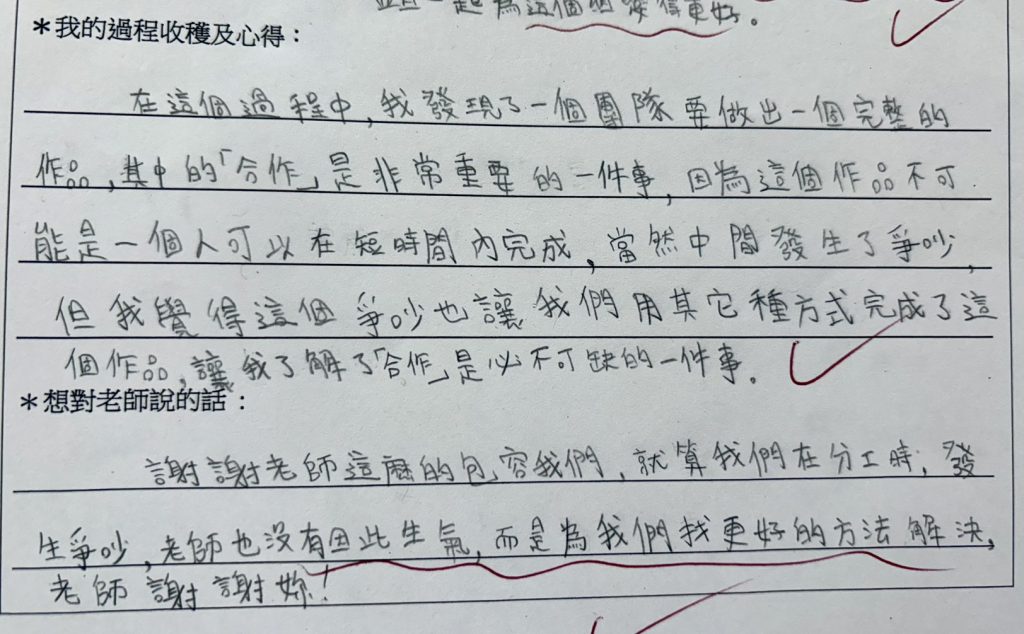 一起為這個團變得更好。
*我的過程收穫及心得：
在這個過程中,我發現了一個團隊要做出一個完整的
作品,其中的「合作」是非常重要的一件事,因為這個作品不可
能是一個人可以在短時間內完成,當然中間發生了爭吵,
但我覺得這個爭吵也讓我們用其它種方式完成了這
個作品,讓我了解了「合作」是必不可缺的一件事。
*想對老師說的話：
謝謝老師這麼的包容我們,就算我們在分工時,發
生爭吵,老師也沒有因此生氣,而是為我們找更好的方法解決,
老師謝謝妳!